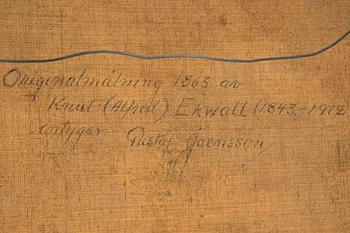 Originalmålning 1863 av
Knut (Alfred) Ekwall (1843-1912
intygar Gustaf Joensson